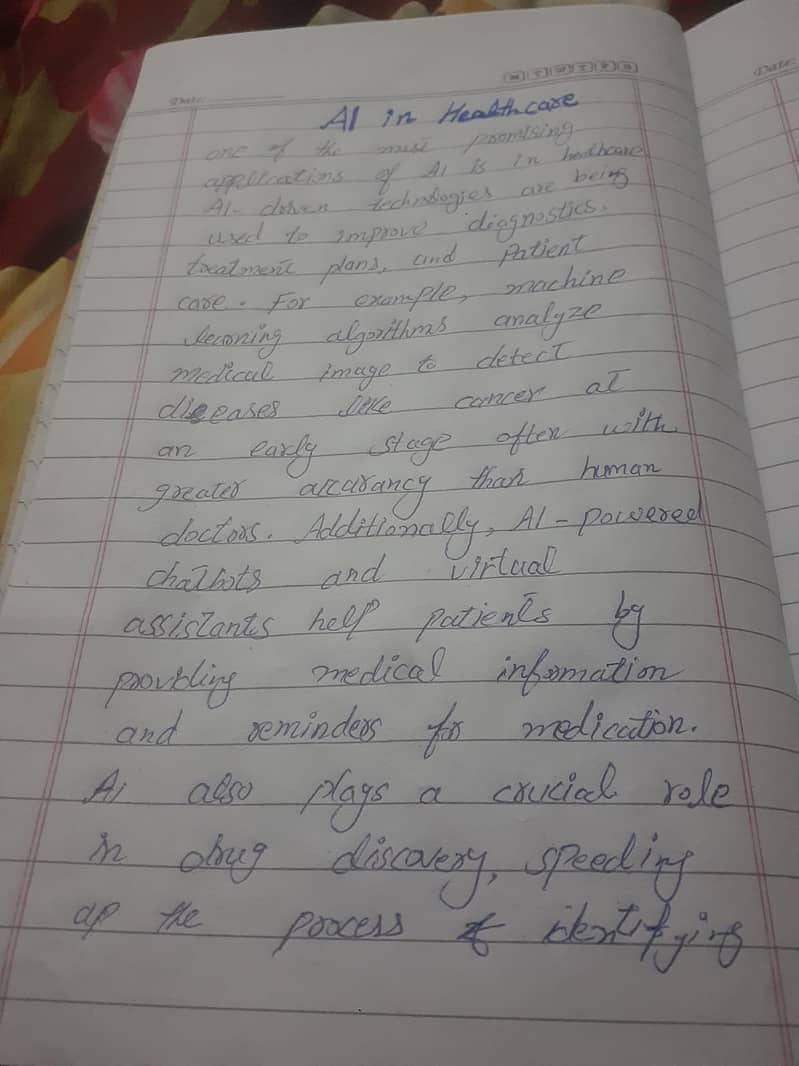 Date:
M T W T F S
Date:
AI in Healthcare
one of the most promising
applications of AI is in healthcare
AI-driven technologies are being
used to improve diagnostics.
treatment plans, and Patient
care. For example, machine
learning algorithms analyze
medical image to detect
diseases like cancer at
an early stage often with
greater accurancy than human
doctors. Additionally, AI-powered
chatbots and virtual
assistants help patients by
providing medical information
and reminders for medication.
AI also plays a crucial role
in drug discovery, speeding
up the process of identifying